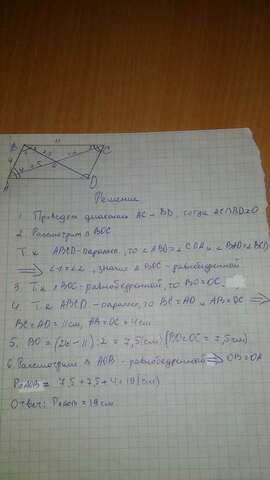 B
11
C
4
A
D
Решение
1. Проведем диагонали AC и BD, тогда AC∩BD=O
2. Рассмотрим △ BOC
Т. к ABCD-паралел, то ∠ABD=∠CDA и ∠BAD=∠BCD
⟹ ∠1=∠2, значит △ BOC-равнобедренный
3. Т. к △ BOC-равнобедренной, то BO=OC,
4. Т. к ABCD-паралел, то BC=AD и AB=DC ⟹
BC=AD=11см, AB=DC=4см
5. BO=(26-11):2=7,5(см) (BO=OC=7,5см)
6. Рассмотрим △ AOB-равнобедренной ⟹ OB=OA
P△AOB = 7,5+7,5+4=19(см)
Ответ: P△AOB=19см.